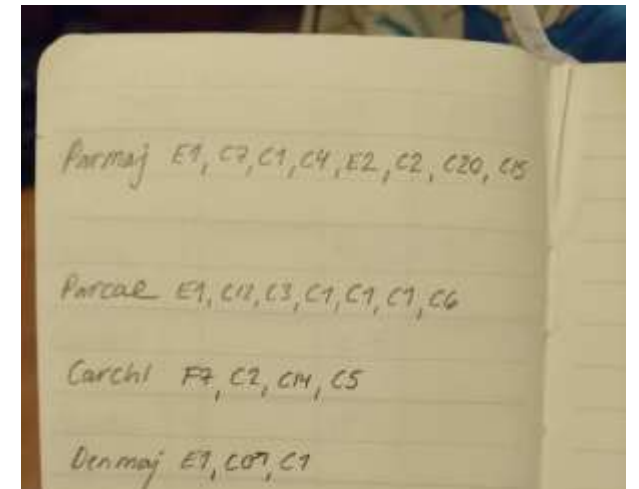 Parmaj E1, C7, C1, C4, E2, C2, C20, C15
Parcae E1, C12, C3, C1, C1, C1, C6
Carchl F7, C2, C14, C5
Denmaj E1, C1